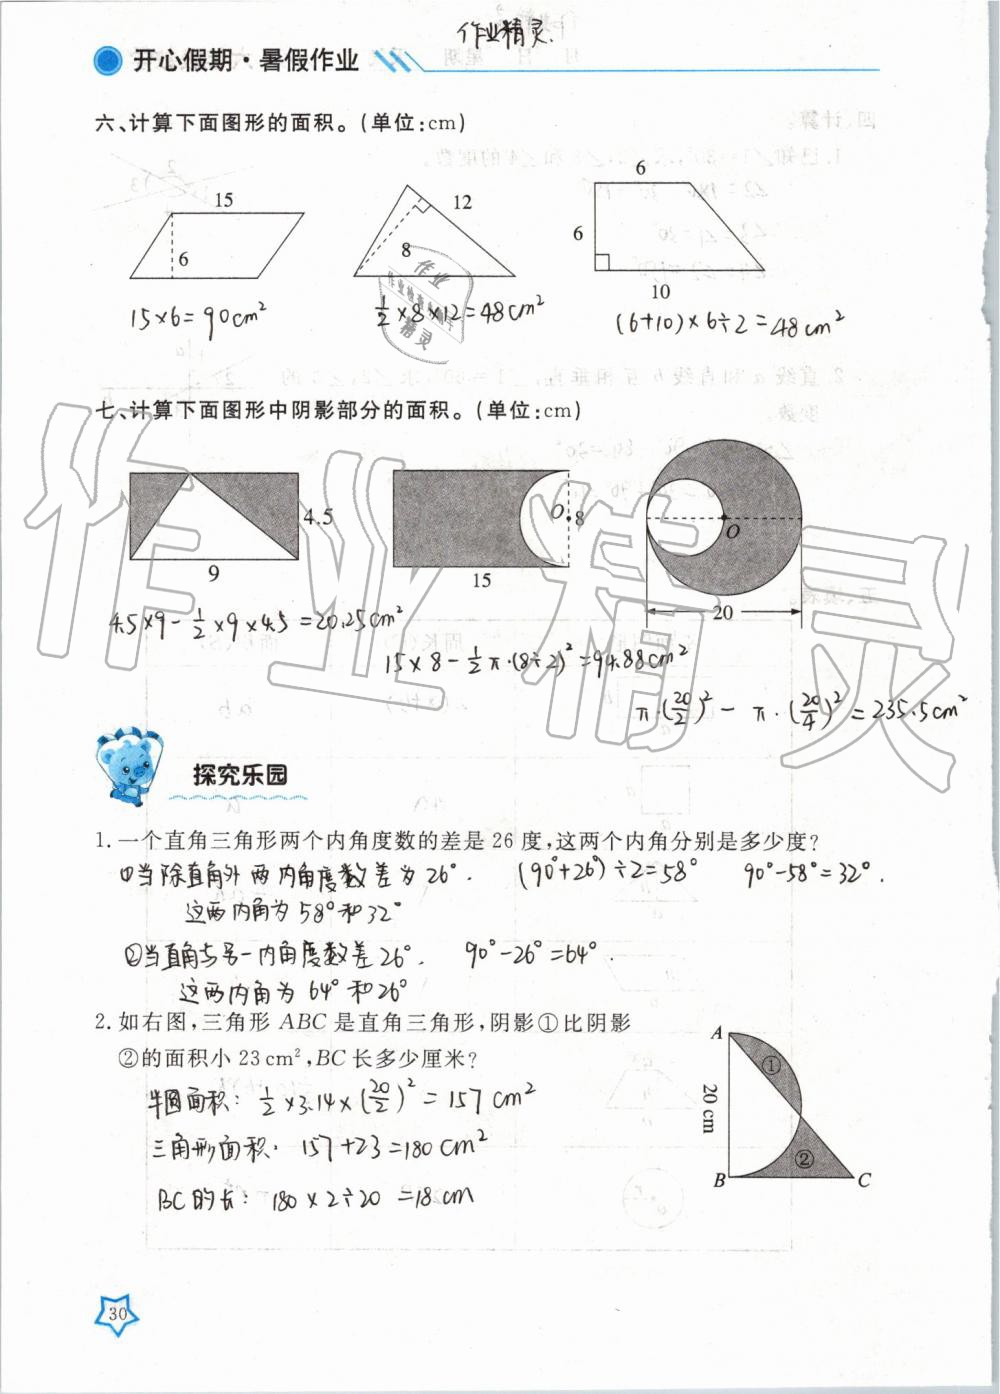 作业精灵.
开心假期·暑假作业
六、计算下面图形的面积。(单位:cm)
15
6
12
8
6
6
10
15×6=90cm²
½×8×12=48cm²
(6+10)×6÷2=48cm²
七、计算下面图形中阴影部分的面积。(单位:cm)
4.5
9
O
8
15
O
20
4.5×9-½×9×4.5=20.25cm²
15×8-½π·(8÷2)²=94.88cm²
π·(20/2)²-π·(20/4)²=235.5cm²
作业精灵
探究乐园
1.一个直角三角形两个内角度数的差是26度,这两个内角分别是多少度?
①当除直角外两内角度数差为26°. (90°+26°)÷2=58° 90°-58°=32°.
这两内角为58°和32°
②当直角与另一内角度数差26°. 90°-26°=64°.
这两内角为64°和26°
2.如右图,三角形ABC是直角三角形,阴影①比阴影
②的面积小23cm²,BC长多少厘米?
半圆面积: ½×3.14×(20/2)²=157cm²
三角形面积: 157+23=180cm²
BC的长: 180×2÷20=18cm
A
①
20 cm
②
B
C
30